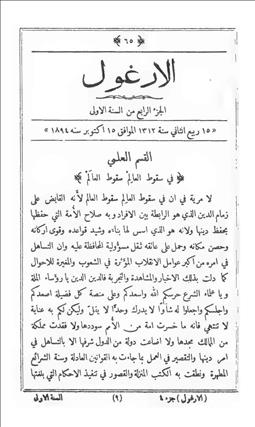 ﴿ ٦٥ ﴾
الارغول
الجزء الرابع من السنة الاولى
« ١٥ ربيع الثاني سنة ١٣١٢ الموافق ١٥ اكتوبر سنه ١٨٩٤ »
القسم العلمي
﴿ في سقوط العالِم سقوط العالَم ﴾
لا مرية في ان في سقوط العالِم سقوط العالَم لأنه القابض على
زمام الدين الذي هو الرابطة بين الافراد وبه صلاح الأمة التي حفظها
بحفظ دينها ولانه هو الذي اسس لما بناه وشيد قواعده وقوى أركانه
وحصن مكانه وحمل على عاتقه ثقل مسؤولية المحافظة عليه وان التساهل
في امره من اكبر عوامل الانقلاب المؤثرة في الشعوب والمغيرة للاحوال
كما دلت بذلك الاخبار والمشاهدة والتجربة فالدين الدين يا رؤساء الملة
ويا علماء الشرع حرسكم الله واسعدكم وعلى منصة كل فضيلة اصعدكم
واجلكم واجعلوا له شأوا لا يدرك وحدا لا ينال وليكن لكم به عناية
لا تنتهي فانه ما خسرت امة من الأمم سوددها ولا فقدت مملكة
من المالك مجدها ولا اضاعت دولة من الدول شرفها الا بالتساهل في
امر دينها والتقصير في العمل بما جاءت به القوانين العادلة وسنة الشرائع
المطهرة ونطقت به الكتب المنزلة والقصور في تنفيذ الاحكام التي بلغتها
(الارغول) جزء ٤ (٩) السنة الاولى